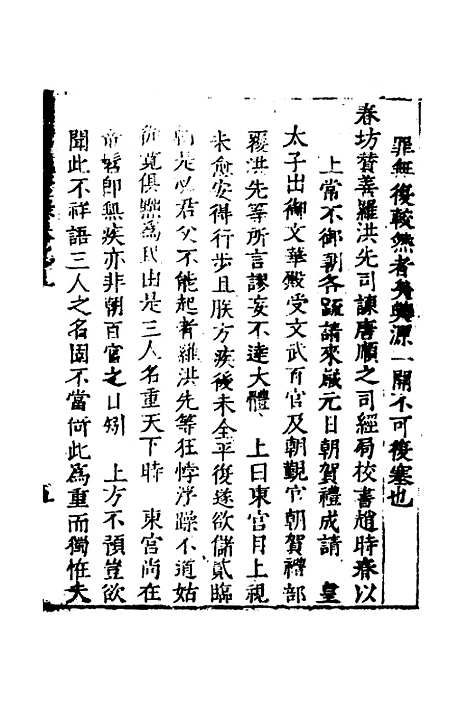 罪無復較然者矣弊源一開不可復塞也
春坊贊善羅洪先司諫唐順之司經局校書趙時春以
上常不御朝各疏請來歲元日朝賀禮成請 皇
太子出御文華殿受文武百官及朝覲官朝賀禮部
覆洪先等所言謬妄不達大體 上曰東宮目上視
未愈安得行步且朕方疾後未全平復遂欲儲貳臨
朝是必君父不能起者羅洪先等狂悖浮躁不道姑
從寬俱黜為民由是三人名重天下時 東宮尚在
卽無疾亦非朝百官之日矧 上方不預豈欲
聞此不祥語三人之名固不當何此為重而獨惟夫